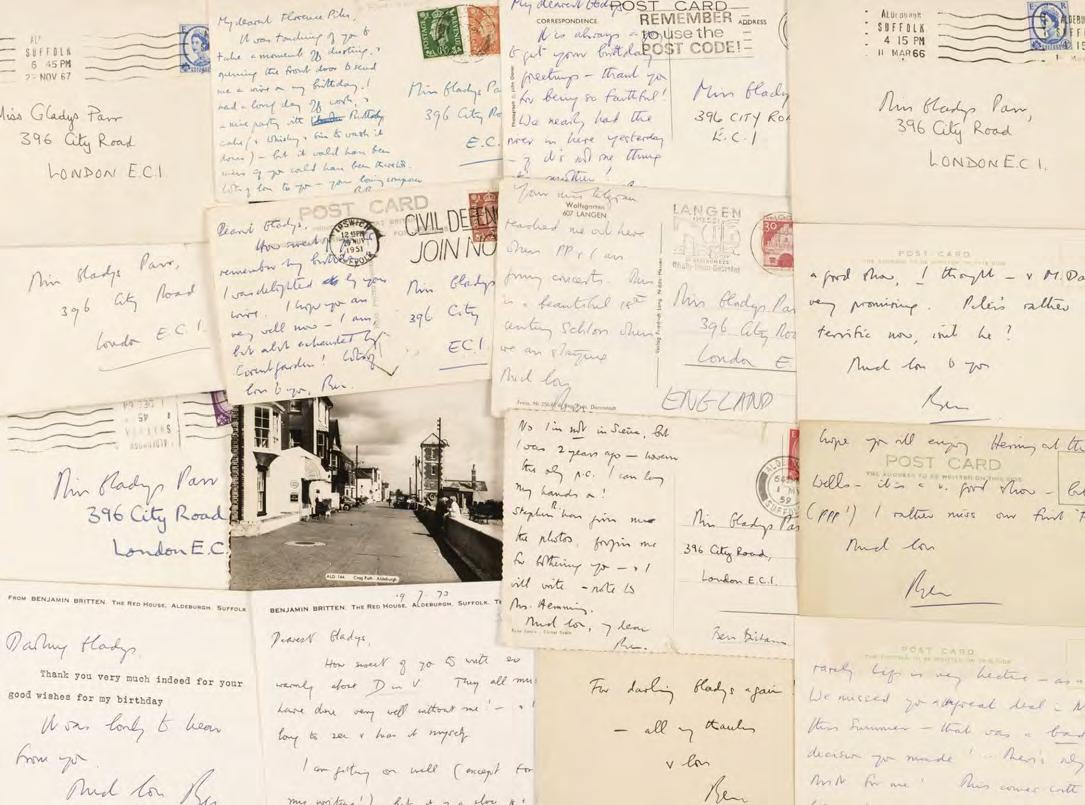 SUFFOLK
6 45 PM
NOV 67
Miss Gladys Parr
396 City Road
LONDON E.C.1.
My dearest Florence Pike,
It was touching of you to
take a moment off dusting, &
opening the front door to send
me a wire on my birthday. I
had a long day of work, &
a nice party with Birthday
cake (& whisky & gin to wash it
down) – but it would have been
nicer if you could have been there
lots of love to you – your loving composer
Miss Gladys Pa
396 City R
E.C.
My dearest Gladys
POST CARD
CORRESPONDENCE
ADDRESS
REMEMBER
to use the
POST CODE!
It is always a
to get your birthday
greetings – thank you
for being so faithful!
We nearly had the
river in here yesterday
– if it's not one thing
another!
Miss Gladys
396 CITY ROA
E.C.1
ALDEBURGH
SUFFOLK
4 15 PM
11 MAR 66
Miss Gladys Parr,
396 City Road
LONDON E.C.1.
Miss Gladys Parr,
396 City Road
London E.C.1.
POST CARD
Dearest Gladys,
How sweet
remember my birthday
I was delighted by your
wire. I hope you are
very well now – I am,
but a bit exhausted by
Covent Garden! Lots of
love to you, Ben.
IPSWICH
12 15PM
NOV
1951
SUFFOLK
CIVIL DEFEN
JOIN NO
Miss Gladys
396 City
EC1
Your nice telegram
Wolfsgarten
607 LANGEN
reached me out here
where PP & I are
giving concerts. This
is a beautiful 18th
century Schloss where
we are staying
Much love
LANGEN
30
Miss Gladys Par
396 City Roa
London E.
ENGLAND
POST CARD
a good show, I thought – & M. Da
very promising. Peter's rather
terrific now, isn't he?
Much love to you
Ben
Miss Gladys Parr
396 City Road
London E.C
ALD 144 Crag Path, Aldeburgh
No I'm not in Siena, but
I was 2 years ago – &
the only p.c. I can lay
my hands on!
Stephen has given me
the photos, forgive me
for bothering you – & I
will write – note to
Mrs. Hemming.
Much love, my dear
Ben.
Miss Gladys Pa
396 City Road,
London E.C.1.
Ben Britten
hope you all enjoy Herring at the
POST CARD
THE ADDRESS TO BE WRITTEN ON THIS SIDE
Wells – it's a v. good show –
(PPP!) I rather miss our first
Much love
Ben
FROM BENJAMIN BRITTEN, THE RED HOUSE, ALDEBURGH, SUFFOLK
Darling Gladys,
Thank you very much indeed for your
good wishes for my birthday
It was lovely to hear
from you.
Much love Ben
BENJAMIN BRITTEN, THE RED HOUSE, ALDEBURGH, SUFFOLK
19.7.73
Dearest Gladys,
How sweet of you to write so
warmly about D in V. They all
have done very well without me! – & I
long to see & hear it myself
I am getting on well (except for
my writing!) but it is a slow
For darling Gladys again
– all my thanks
& love
Ben
POST CARD
rarely. Life is very hectic – as
We missed you a great deal in
this Summer – that was a bad
decision you made!
for me! This comes with